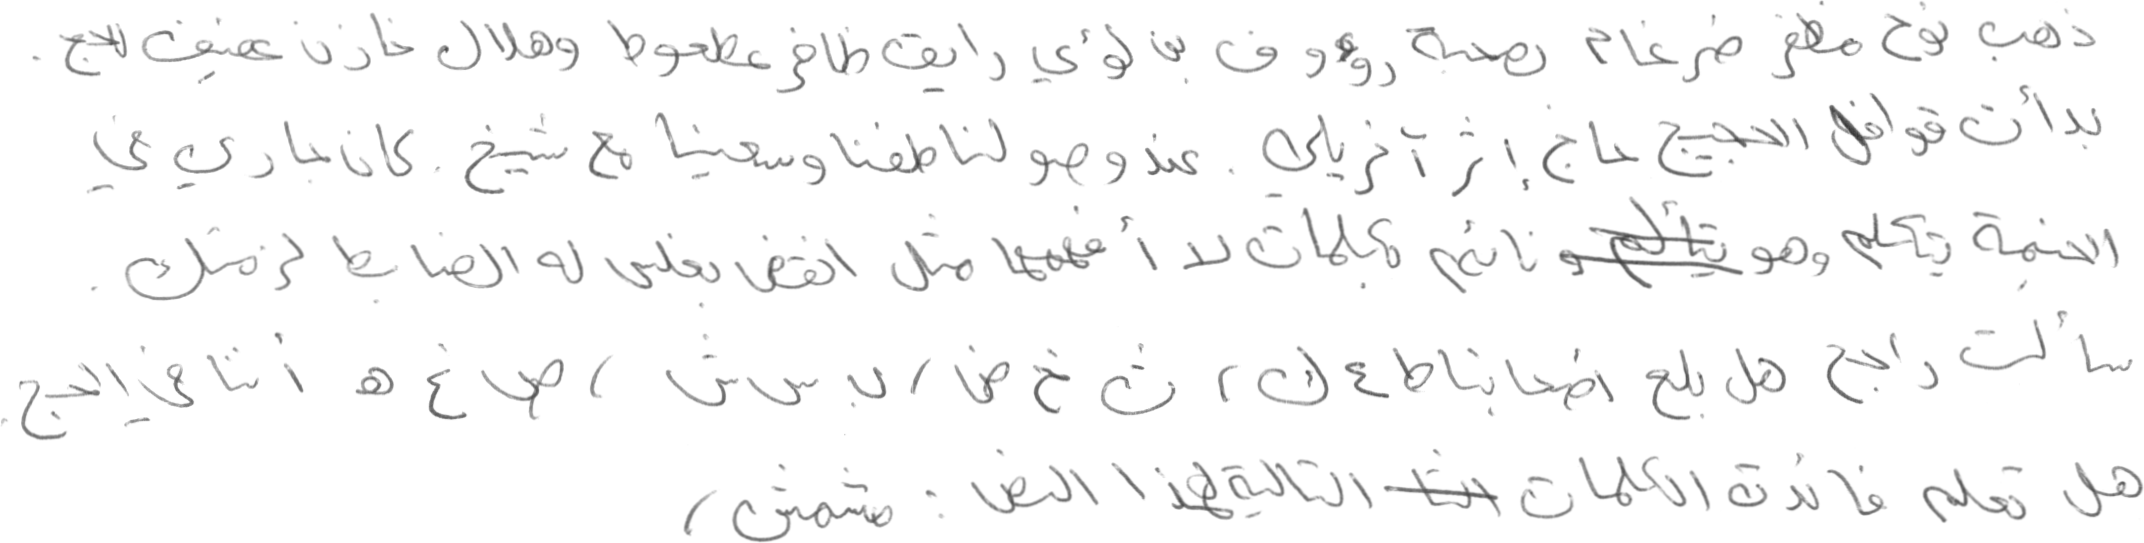 ذهب نوح مظفر ضرغام بصحبة رؤوف بن لؤي رايق ظافر عطعوط وهلال خازن عفيف للحج .
بدأت قوافل الحجيج حاج إثر آخر يلبي . عند وصولنا طفنا وسعينا مع شيخ . كان جاري في
الخيمة يتكلم وهو نائم بكلمات لا أفهمها مثل افقض بغلس له الضابط لزمتك .
سألت راجح هل بلع اضحا بناط ع ك ، ث خ ض ، ب س ش ، ص غ ه أثنا في الحج .
هل تعلم فائدة الكلمات التالية لهذا النص : مشمش ،